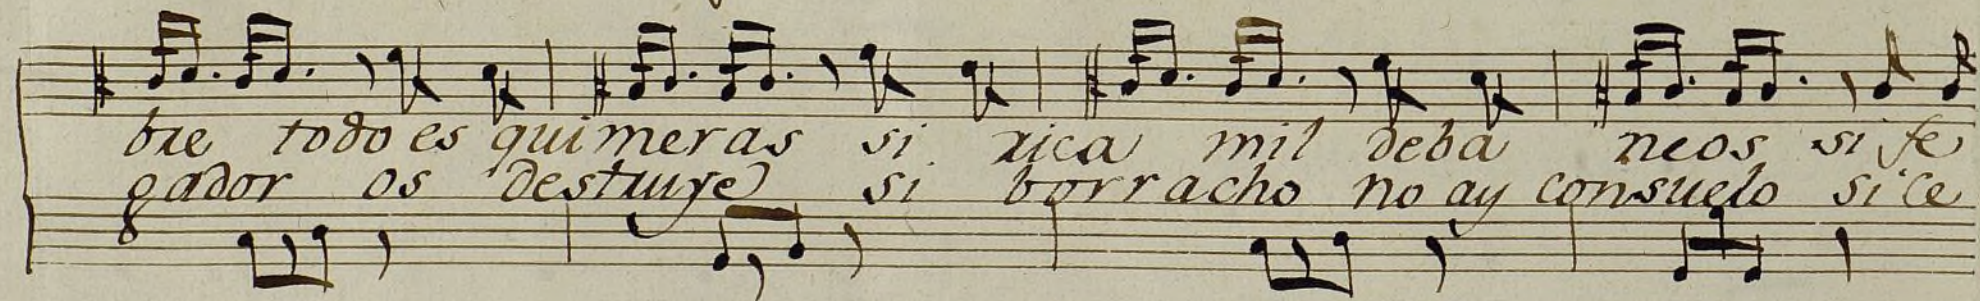 bre todo es quimeras si rica mil deba neos si fe
gador os destruye si borracho no ay consuelo si ce